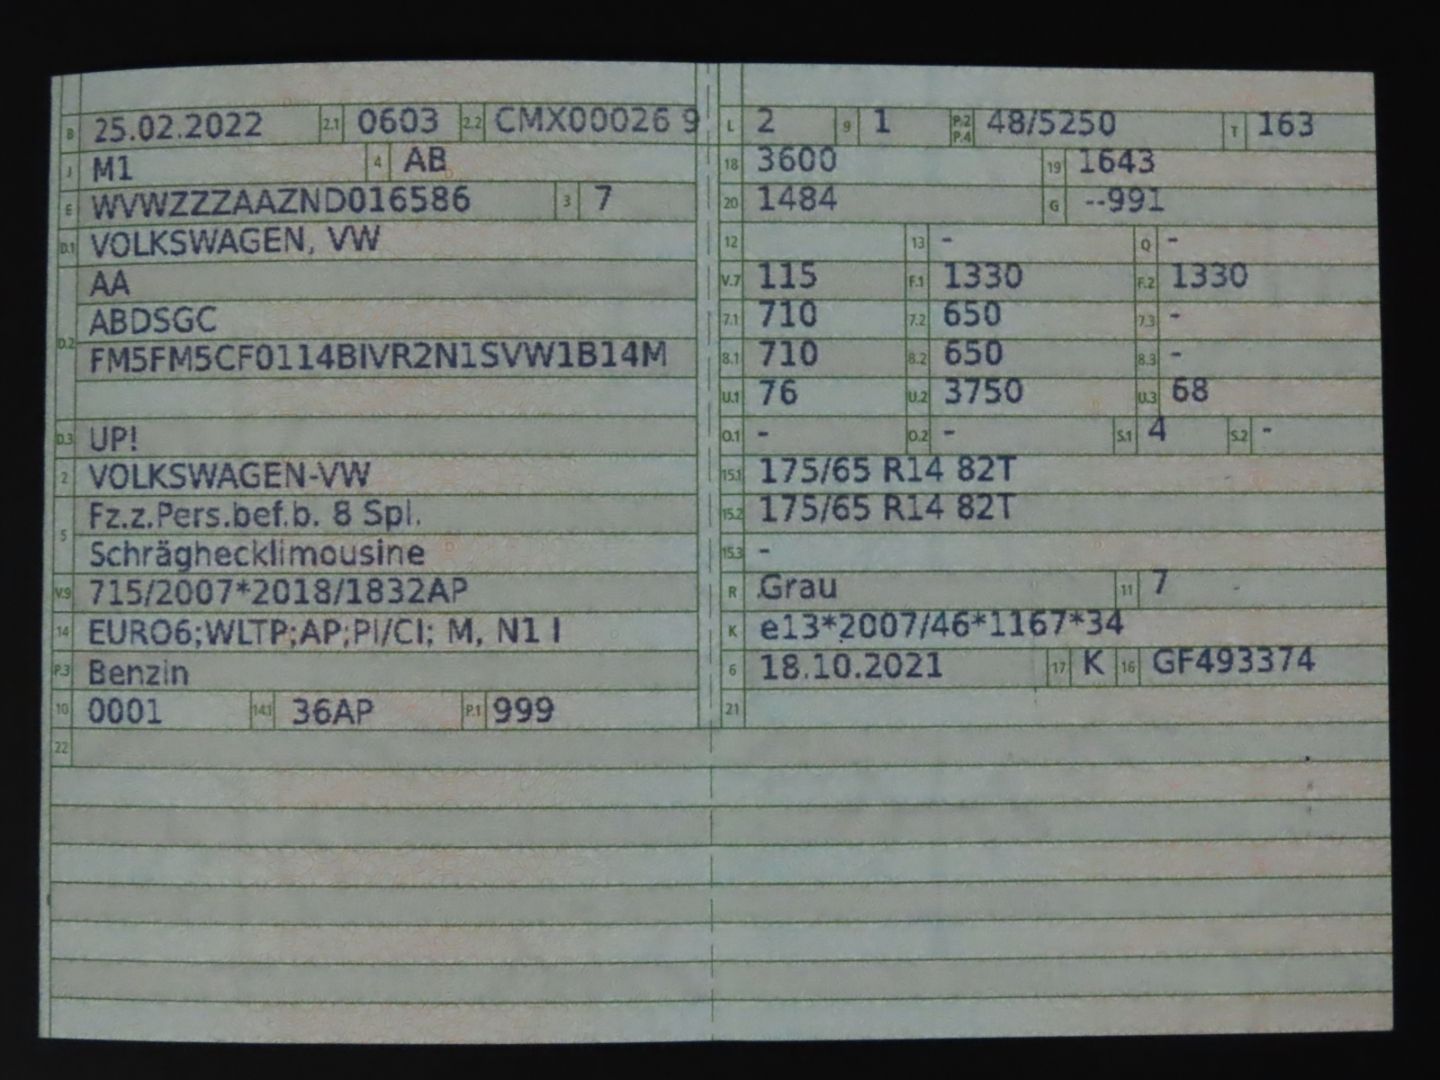 B 25.02.2022 2.1 0603 2.2 CMX00026 9
J M1 4 AB
E WVWZZZAAZND016586 3 7
D.1 VOLKSWAGEN, VW
AA
ABDSGC
D.2 FM5FM5CF0114BIVR2N1SVW1B14M
D.3 UP!
2 VOLKSWAGEN-VW
5 Fz.z.Pers.bef.b. 8 Spl.
Schräghecklimousine
V.9 715/2007*2018/1832AP
14 EURO6;WLTP;AP;PI/CI; M, N1 I
P.3 Benzin
10 0001 14.1 36AP P.1 999
22
L 2 9 1 P.2 P.4 48/5250 T 163
18 3600 19 1643
20 1484 G --991
12 13 - Q -
V.7 115 F.1 1330 F.2 1330
7.1 710 7.2 650 7.3 -
8.1 710 8.2 650 8.3 -
U.1 76 U.2 3750 U.3 68
O.1 - O.2 - S.1 4 S.2 -
15.1 175/65 R14 82T
15.2 175/65 R14 82T
15.3 -
R Grau 11 7 -
K e13*2007/46*1167*34
6 18.10.2021 17 K 16 GF493374
21